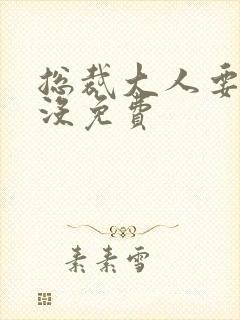 总裁大人要
没免费
素素雪